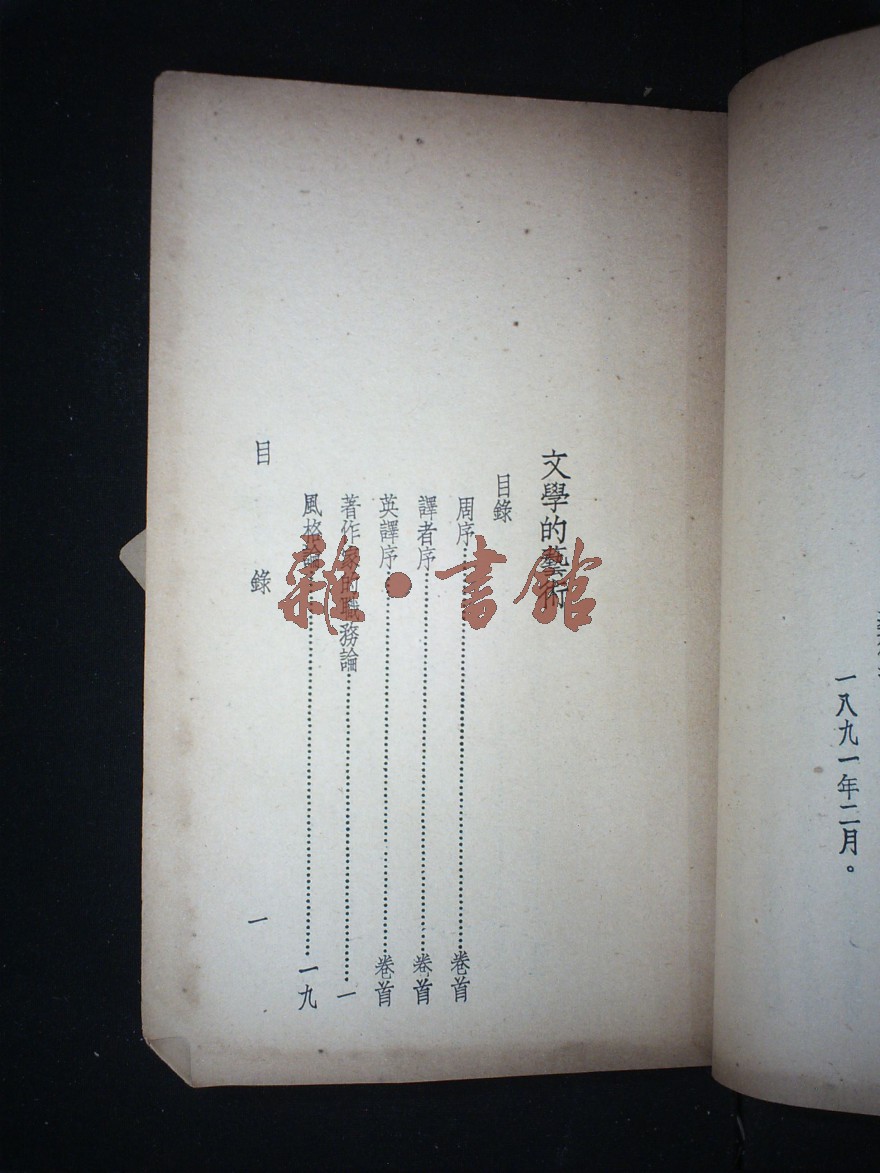 一八九一年二月。
文學的藝術
目錄
周序……卷首
譯者序……卷首
英譯序……卷首
著作家的職務論……一
風格論……一九
目錄
一
雜·書館